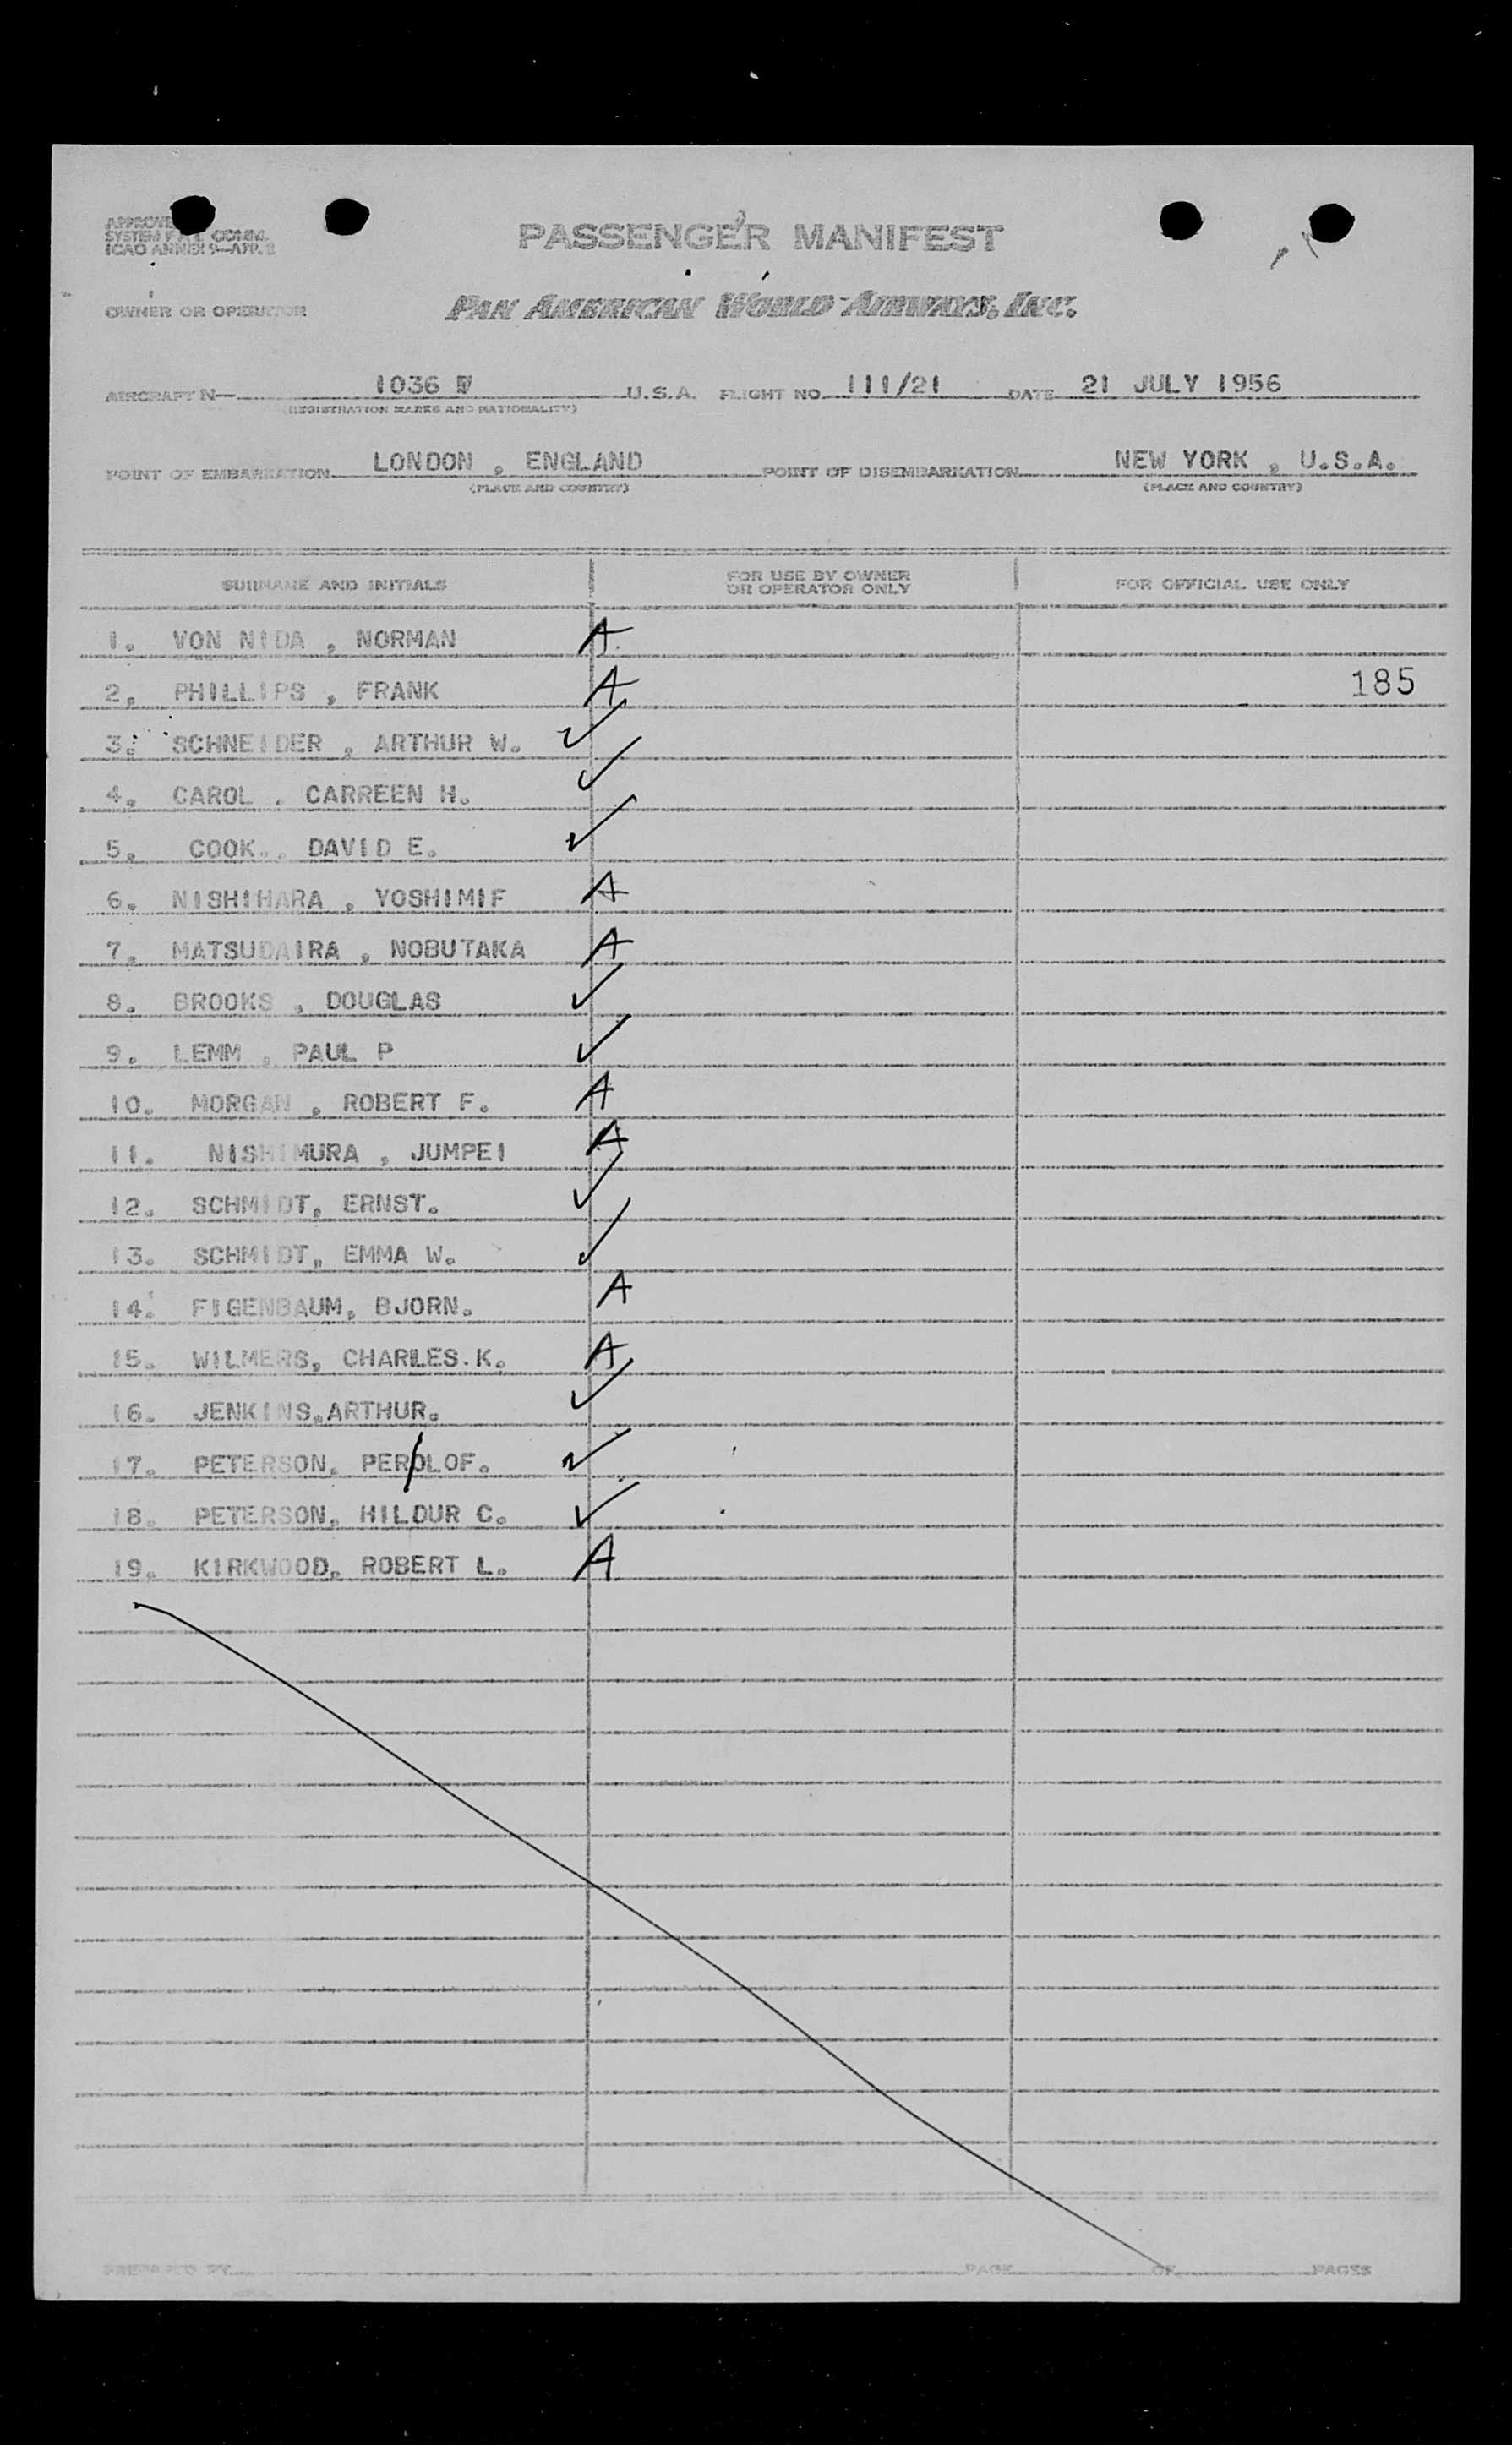 APPROVED
SYSTEM F A L COMM.
ICAO ANNEX 9—APP. 3
PASSENGER MANIFEST
OWNER OR OPERATOR PAN AMERICAN WORLD AIRWAYS, INC.
AIRCRAFT N— 1036 V U.S.A. FLIGHT NO. 111/21 DATE 21 JULY 1956
(REGISTRATION MARKS AND NATIONALITY)
POINT OF EMBARKATION LONDON , ENGLAND POINT OF DISEMBARKATION NEW YORK , U.S.A.
(PLACE AND COUNTRY) (PLACE AND COUNTRY)
SURNAME AND INITIALS FOR USE BY OWNER OR OPERATOR ONLY FOR OFFICIAL USE ONLY
1. VON NIDA , NORMAN A
2. PHILLIPS , FRANK A 185
3. SCHNEIDER , ARTHUR W. ✓
4. CAROL , CARREEN H. ✓
5. COOK , DAVID E. ✓
6. NISHIHARA , YOSHIMIF A
7. MATSUDAIRA , NOBUTAKA A
8. BROOKS , DOUGLAS ✓
9. LEMM , PAUL P ✓
10. MORGAN , ROBERT F. A
11. NISHIMURA , JUMPEI A
12. SCHMIDT, ERNST. ✓
13. SCHMIDT, EMMA W. ✓
14. FIGENBAUM, BJORN. A
15. WILMERS, CHARLES.K. A
16. JENKINS,ARTHUR. ✓
17. PETERSON, PER/OLOF. ✓
18. PETERSON, HILDUR C. ✓
19. KIRKWOOD, ROBERT L. A
PREPARED BY PAGE OF PAGES